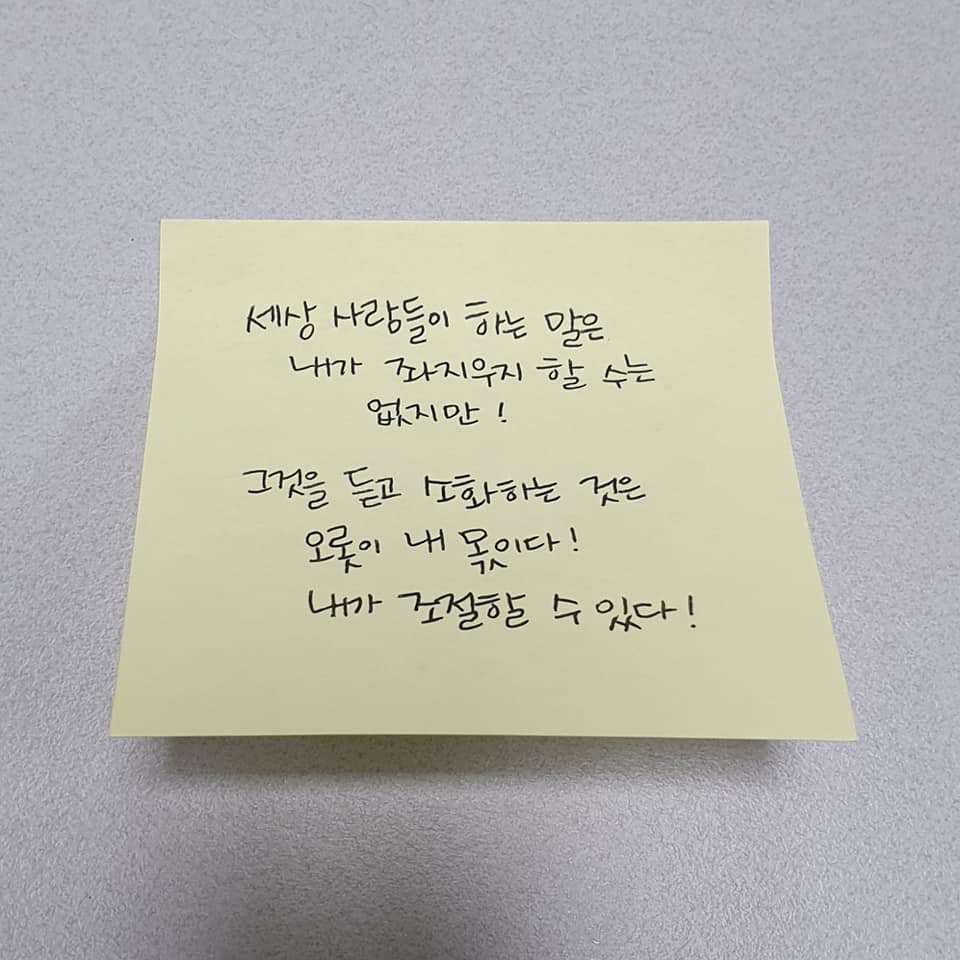 세상 사람들이 하는 말은
내가 좌지우지 할 수는
없지만!
그것을 듣고 소화하는 것은
오롯이 내 몫이다!
내가 조절할 수 있다!